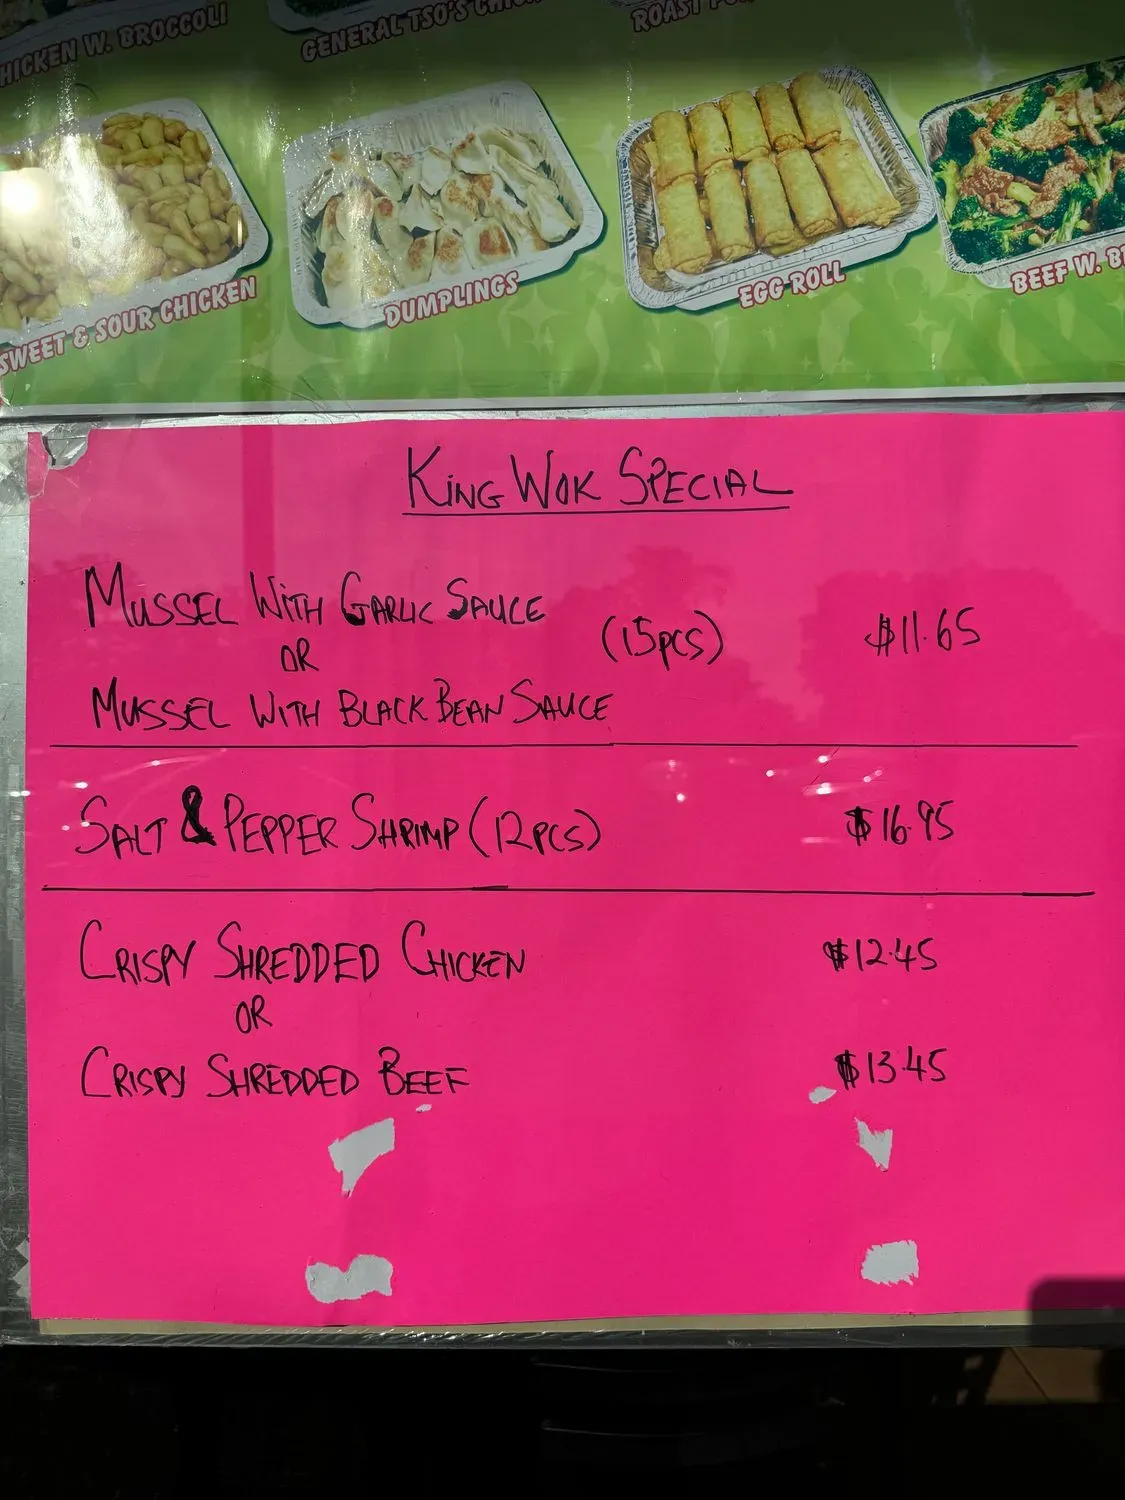 CHICKEN W. BROCCOLI
GENERAL TSO'S
ROAST
SWEET & SOUR CHICKEN
DUMPLINGS
EGG ROLL
BEEF W.
KING WOK SPECIAL
MUSSEL WITH GARLIC SAUCE
OR
(15PCS) $11.65
MUSSEL WITH BLACK BEAN SAUCE
SALT & PEPPER SHRIMP (12PCS) $16.95
CRISPY SHREDDED CHICKEN $12.45
OR
CRISPY SHREDDED BEEF $13.45